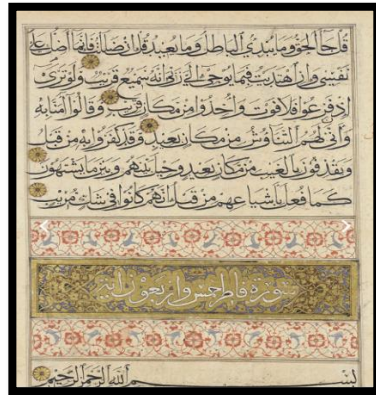 قل جاء الحق وما يبدئ الباطل وما يعيد قل إن ضللت فإنما أضل على
نفسي وإن اهتديت فبما يوحي إلي ربي إنه سميع قريب ولو ترى
إذ فزعوا فلا فوت وأخذوا من مكان قريب وقالوا آمنا به
وأنى لهم التناوش من مكان بعيد وقد كفروا به من قبل
ويقذفون بالغيب من مكان بعيد وحيل بينهم وبين ما يشتهون
كما فعل بأشياعهم من قبل إنهم كانوا في شك مريب
سورة فاطر خمس واربعون آية
بسم الله الرحمن الرحيم